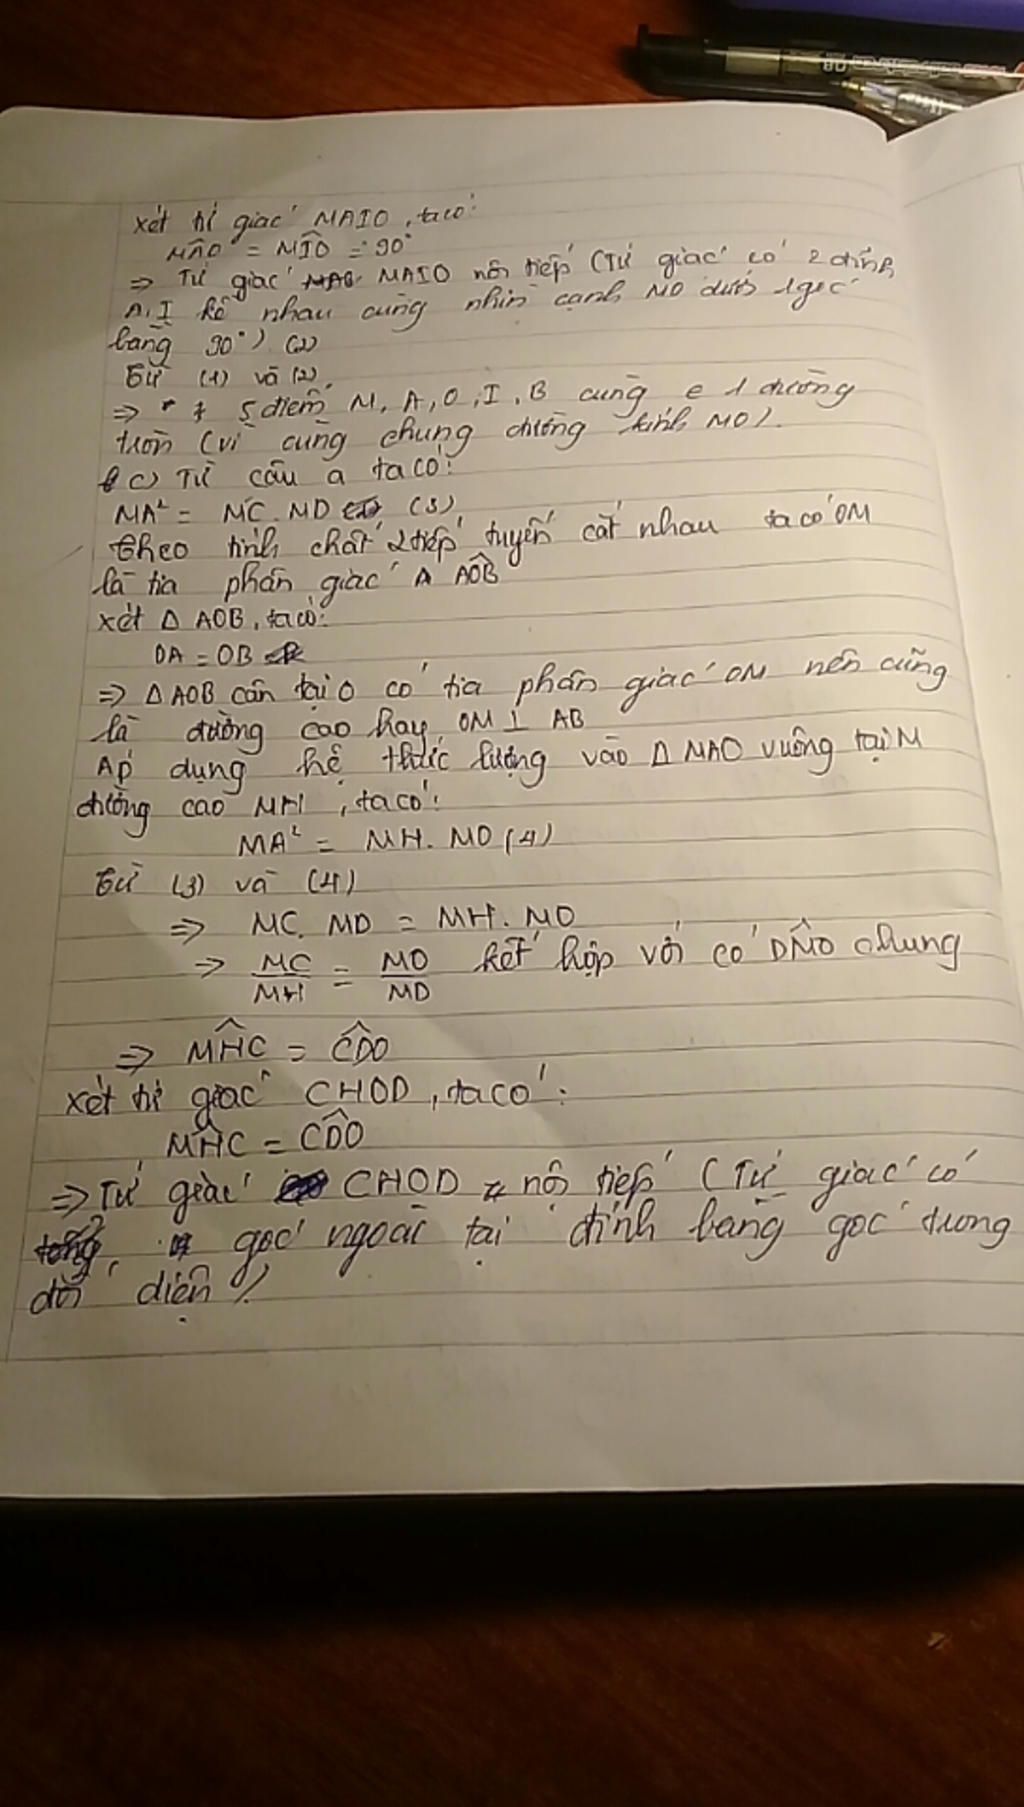 Xét tứ giác MAIO, ta có:
MÂO = MÎO = 90°
=> Tứ giác MAIO nội tiếp (Tứ giác có 2 đỉnh
A, I kề nhau cùng nhìn cạnh MO dưới 1 góc
bằng 90°) (2)
Từ (1) và (2),
=> 5 điểm M, A, O, I, B cùng e 1 đường
tròn (vì cùng chung đường kính MO).
c) Từ câu a ta có:
MA² = MC. MD (3)
Theo tính chất 2 tiếp tuyến cắt nhau ta có OM
là tia phân giác AÔB
xét Δ AOB, ta có:
OA = OB
=> Δ AOB cân tại O có tia phân giác OM nên cũng
là đường cao hay OM ⊥ AB
Áp dụng hệ thức lượng vào Δ MAO vuông tại M
đường cao MH, ta có:
MA² = MH. MO (4)
Từ (3) và (4)
=> MC. MD = MH. MO
=> MC/MH = MO/MD kết hợp với có DM̂O chung
=> MĤC = CD̂O
xét tứ giác CHOD, ta có:
MĤC = CD̂O
=> Tứ giác CHOD nội tiếp (Tứ giác có
góc ngoài tại đỉnh bằng góc trong
đối diện)